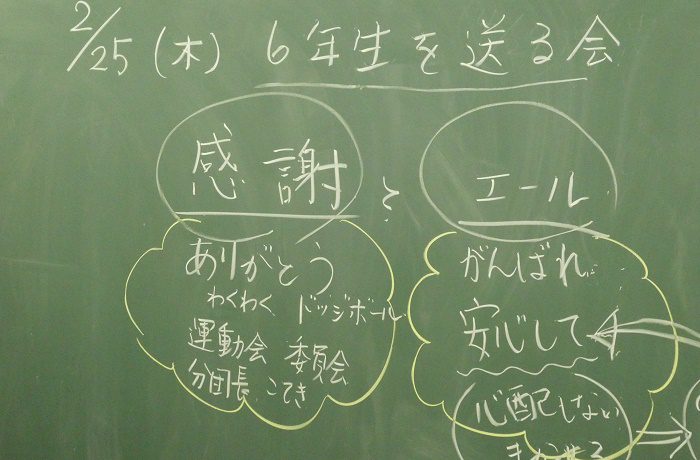 2/25(木) 6年生を送る会
感謝 と エール
ありがとう
わくわく ドッジボール
運動会 委員会
分団長 こてき
がんばれ
安心して
心配しない